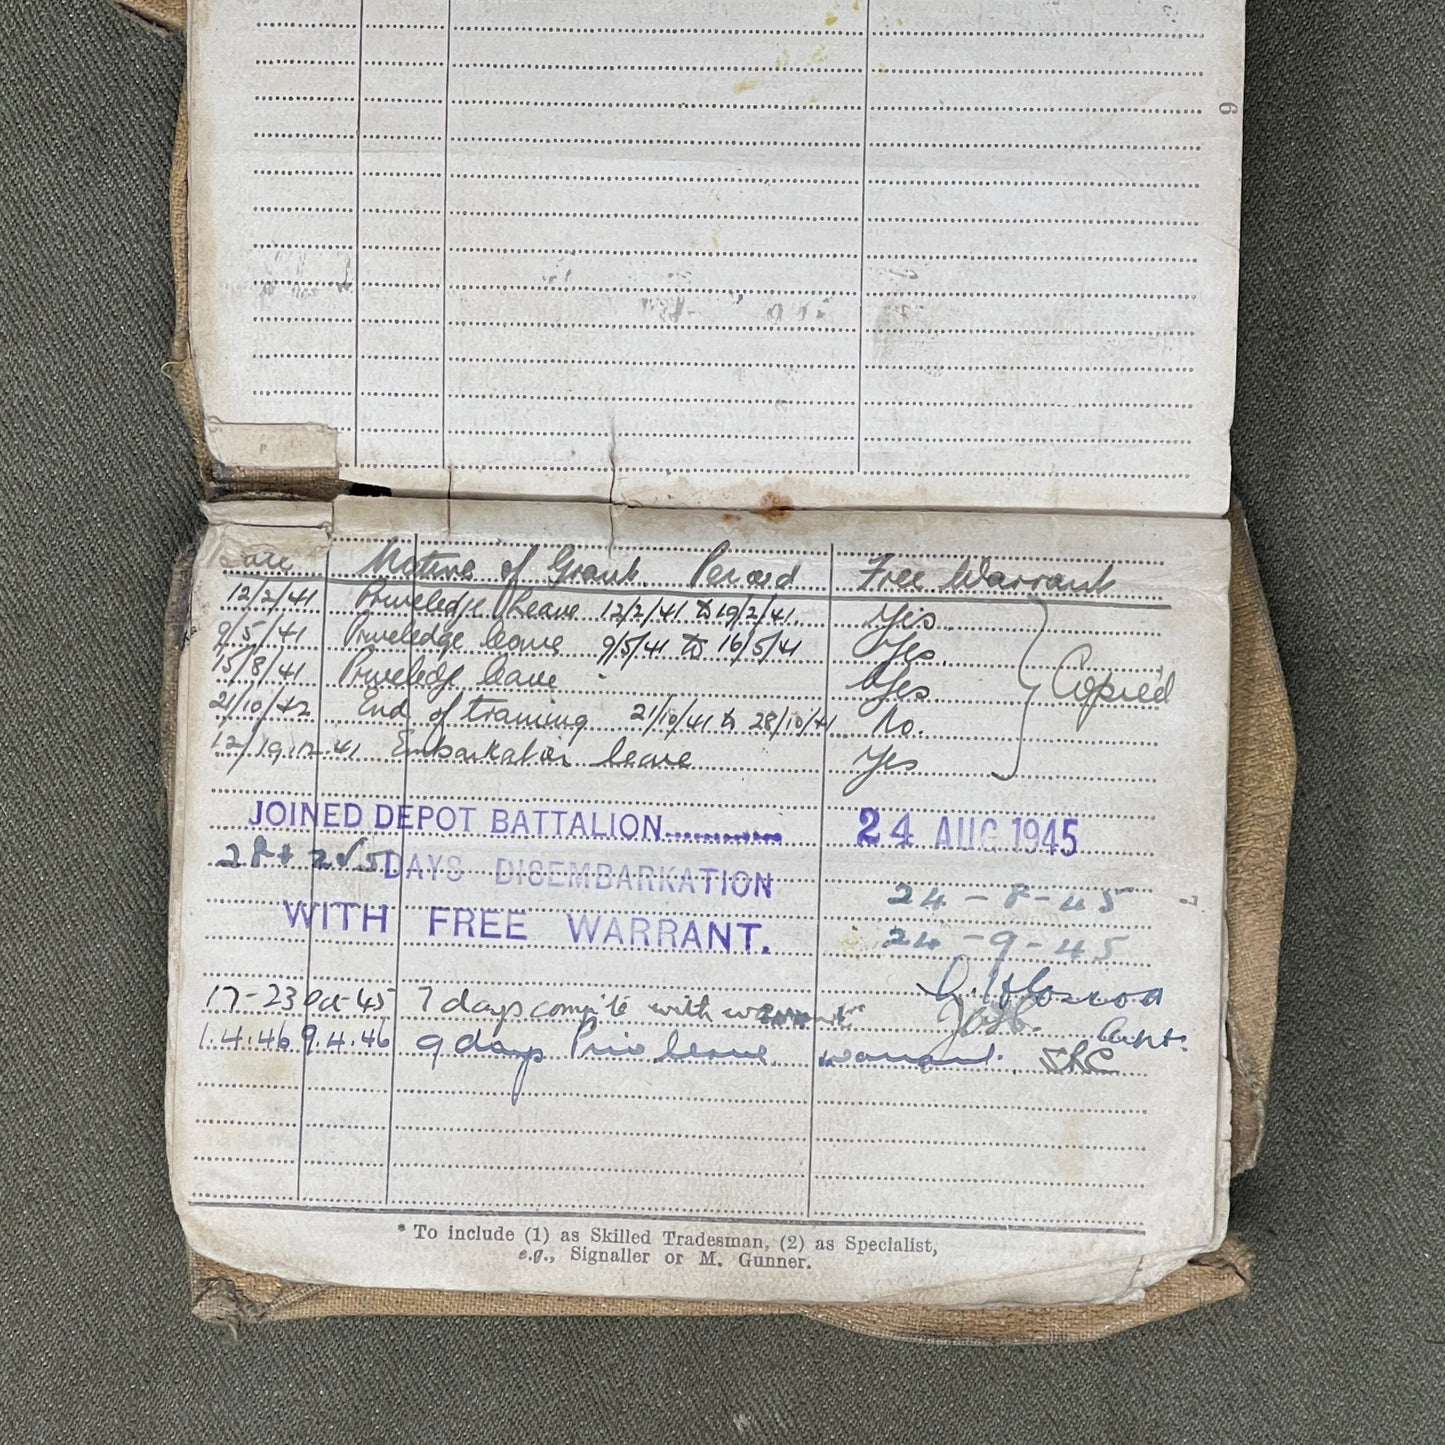 6
Date Nature of Grant. Period Free Warrant
12/2/41 Priveledge Leave 12/2/41 to 19/2/41. Yes
9/5/41 Priveledge leave 9/5/41 to 16/5/41 Yes.
15/8/41 Priveledge leave Yes
Copied
21/10/42 End of training 21/10/41 to 28/10/41 No.
12/19.12.41 Embarkation leave Yes
JOINED DEPOT BATTALION 24 AUG 1945
28 + 2 DAYS DISEMBARKATION 24-8-45
WITH FREE WARRANT. 24-9-45
7
17-23 Oct-45 7 days with
Capt.
1.4.46 9.4.46 9 days Priv leave warrant.
* To include (1) as Skilled Tradesman, (2) as Specialist,
e.g., Signaller or M. Gunner.